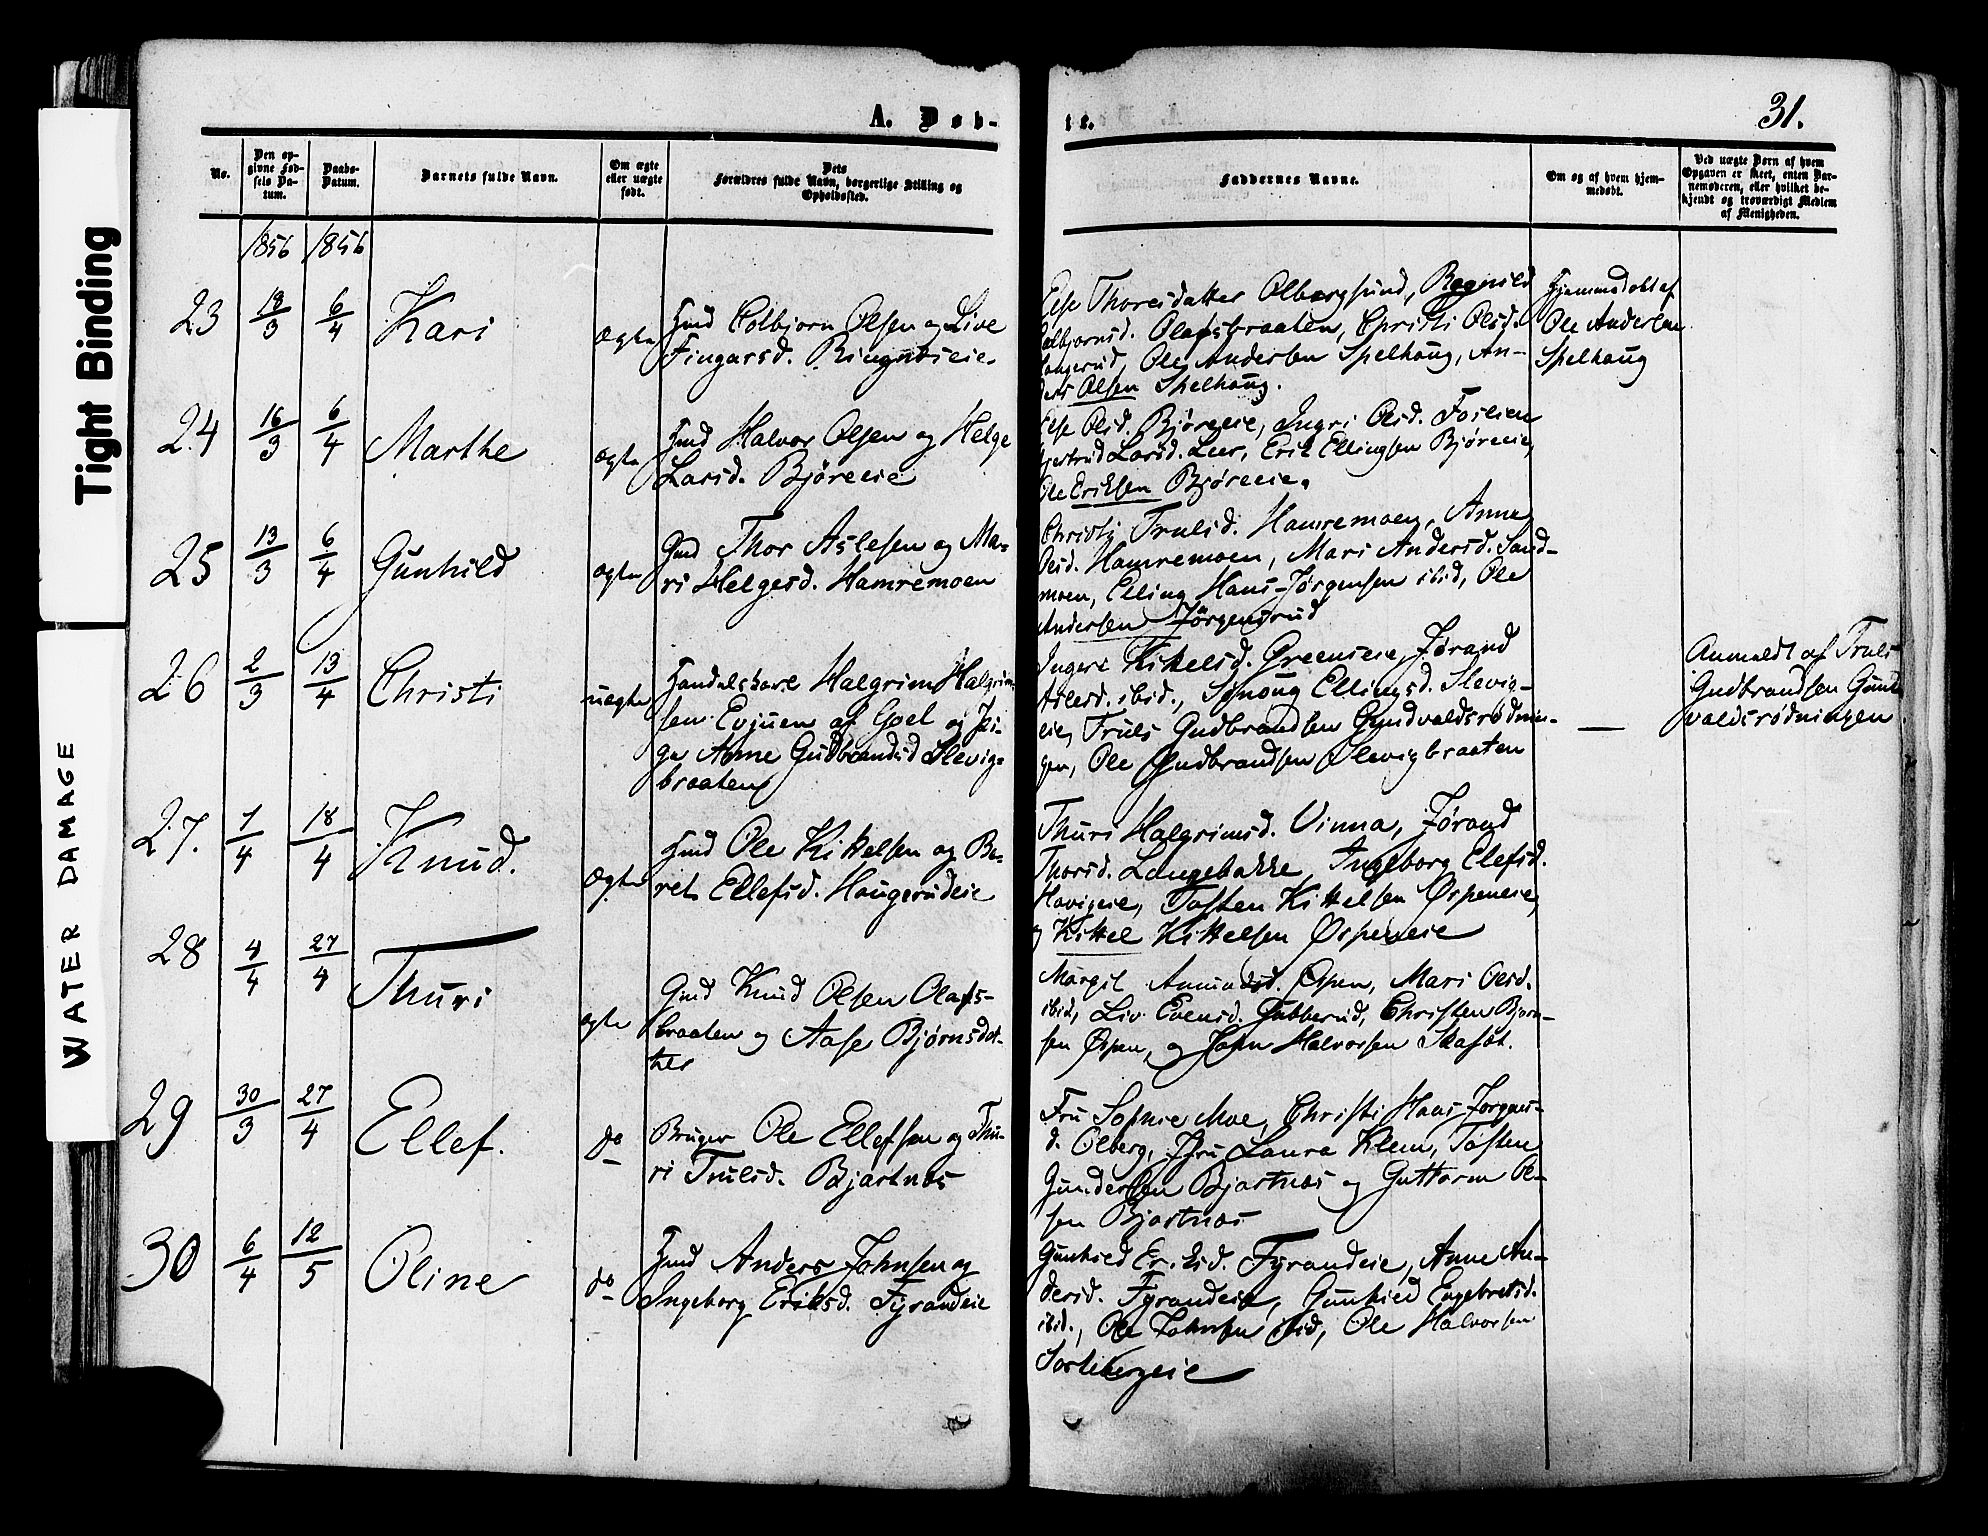 Tight Binding
WATER DAMAGE
A. Døb-
te.
31.
No.
Den op-
givne Fød-
sels Da-
tum.
Daabs-
Datum.
Barnets fulde Navn.
Om ægte
eller uægte
født.
Dets
Forældres fulde Navn, borgerlige Stilling og
Opholdssted.
Faddernes Navne.
Om og af hvem hjem-
medøbt.
Ved uægte Børn af hvem
Opgaven er skeet, enten Bar-
nemoderen, eller hvilket be-
kjendt og troværdigt Medlem
af Menigheden.
1856 1856
23 18/3 6/4 Kari ægte
Hmd Colbjørn Olsen og Live
Fingarsd. Ringnæseie.
Else Thoresdatter Olbergsund, Ragnild
Colbjørnsd. Olafsbraaten, Christi Olsd.
Haugerud, Ole Andersen Spelhaug, An-
ders Olsen Spelhaug.
Hjemmedøbt af
Ole Andersen
Spelhaug
24 16/3 6/4 Marthe ægte
Hmd Halvor Olsen og Helge
Larsd. Bjøreeie
Else Olsd. Bjøreeie, Ingri Olsd. Foslien
Gjertrud Larsd. Leer, Erik Ellingsen Bjøreeie,
Ole Eriksen Bjøreeie.
25 13/3 6/4 Gunhild ægte
Gmd Thor Aslesen og Ma-
ri Helgesd. Hamremoen
Christi Trulsd. Hamremoen, Anne
Olsd. Hamremoen, Mari Andersd. Sand-
moen, Elling Hans-Jørgensen ibid, Ole
Andersen Jørgensrud
26 2/3 13/4 Christi uægte
Handelskarl Halgrim Halgrim-
sen Evjuen af Goel og Pi-
ge Anne Gudbrandsd Slevig-
braaten
Ingere Kittelsd. Greenseie, Jørand
Aslesd. ibid., Synoug Ellingsd. Slevig-
eie, Truls Gudbrandsen Gundvaldsrødnin-
gen, Ole Gudbrandsen Slevigbraaten
—
Anmeldt af Truls
Gudbrandsen Gun-
valdsrødningen
27. 1/4 18/4 Knud. Ægte
Hmd Ole Kittelsen og Be-
ret Ellefsd. Haugerudeie
Thuri Halgrimsd. Vinna, Jørand
Thorsd. Langebakke, Ingeborg Elefsd.
Havigeie, Tosten Kittelsen Øspeneie,
og Kittel Kittelsen Øspeneie
28 4/4 27/4 Thuri ægte
Gmd Knud Olsen Olafs-
braaten og Aase Bjørnsdat-
ter
Margit Amundsd. Øspen, Mari Olsd.
ibid, Liv Evensd. Gubberud, Christen Bjørn-
sen Øspen, og John Halvorsen Skafat.
29 30/3 27/4 Ellef. do
Bruger Ole Ellefsen og Thu-
ri Trulsd. Bjartnæs
Fru Sophie Moe, Christi Hans Jørgens-
d. Olberg, Fru Laura Klem, Tosten
Gundersen Bjartnæs og Guttorm Ol-
sen Bjartnæs
30 6/4 12/5 Oline do
Hmd Anders Johnsen og
Ingeborg Eriksd. Fyrandeie
Gunhild Eriksd. Fyrandeie, Anne An-
dersd. Fyrandeie, Gunhild Engebretsd.
ibid., Ole Johnsen ibid, Ole Halvorsen
Sortebergeie